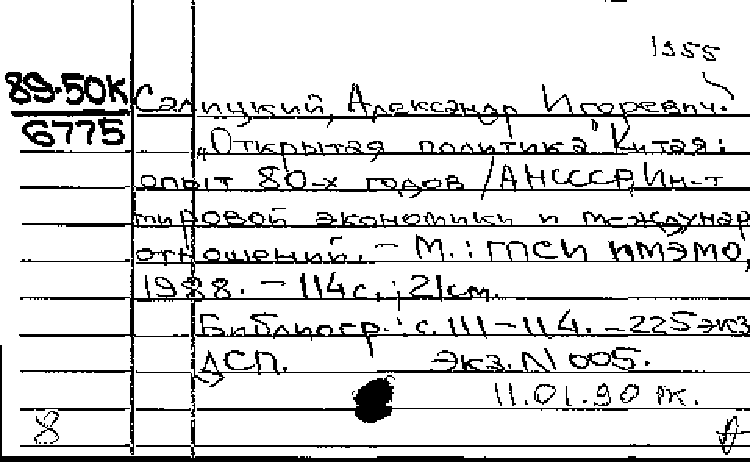 1955
89-50К Салицкий, Александр Игоревич.
6775 „Открытая политика" Китая:
опыт 80-х годов / АН СССР, Ин-т
мировой экономики и междунар
отношений. – М.: ГПСИ ИМЭМО,
1988. – 114 с.; 21 см.
Библиогр.: с. 111–114. – 225 экз
ДСП. Экз. N 005.
11.01.90
8